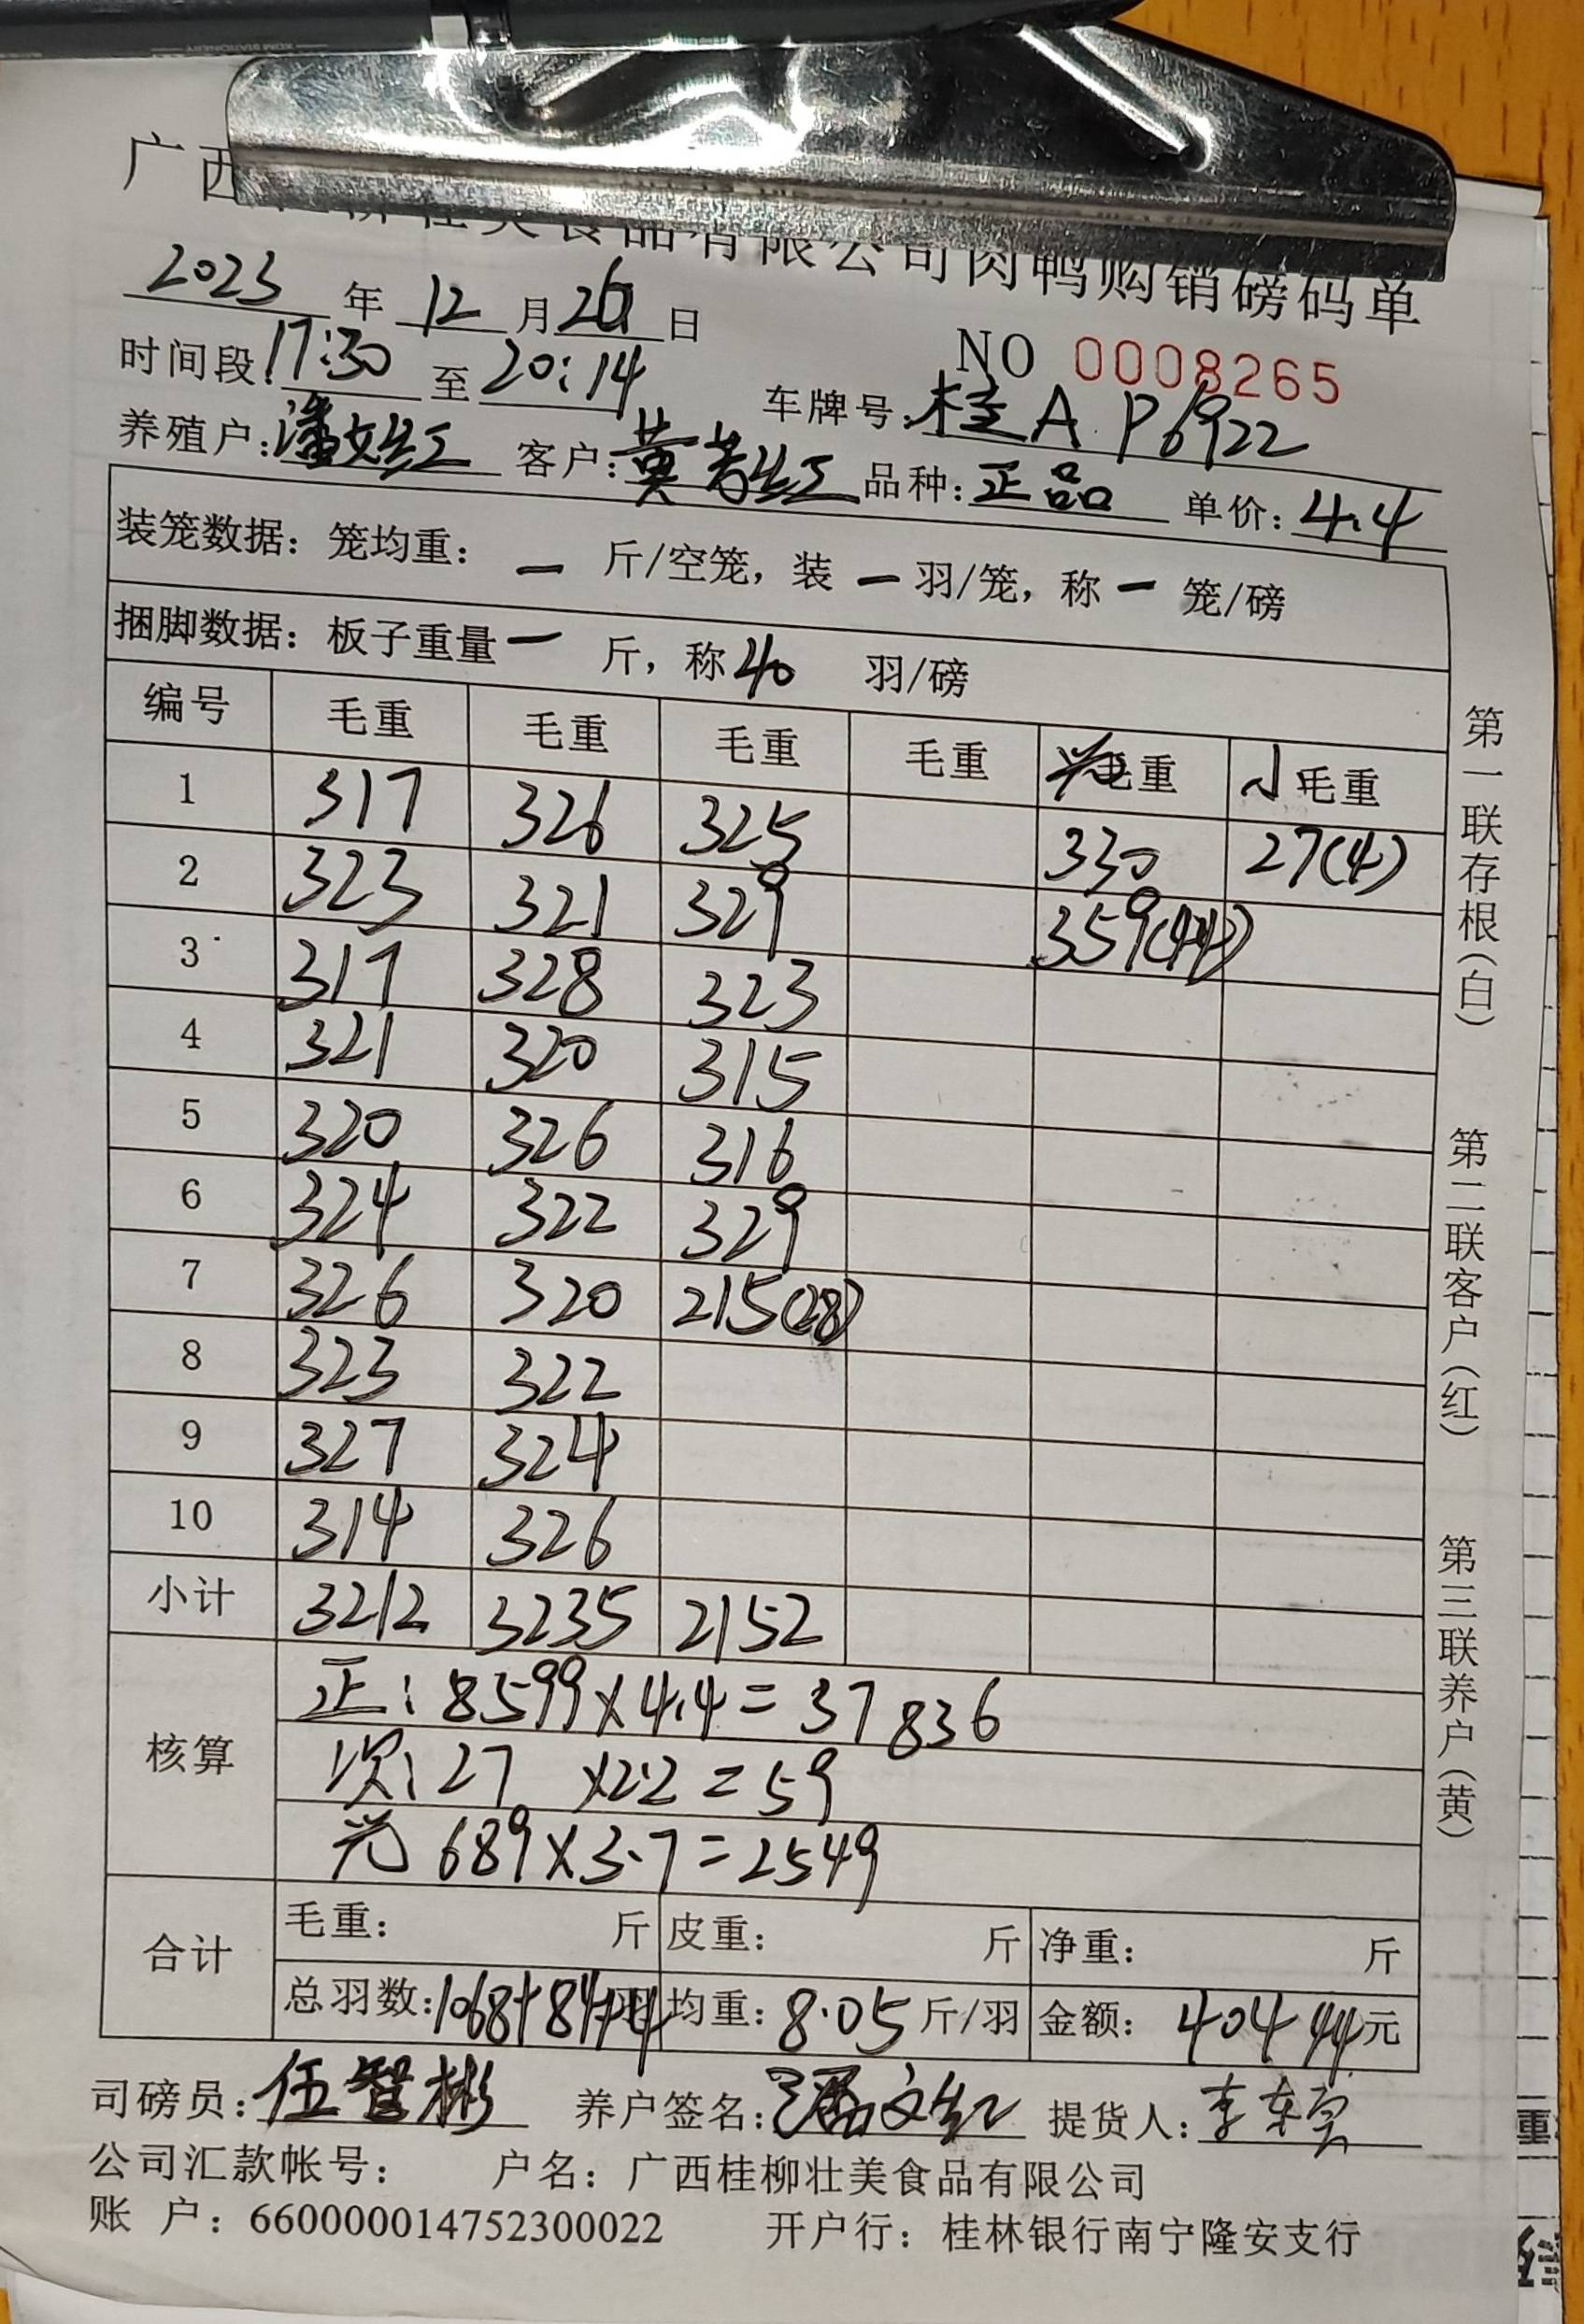 广西桂柳壮美食品有限公司肉鸭购销磅码单
2023年12月26日
NO 0008265
时间段:17:30至20:14 车牌号:桂A P6922
养殖户:潘文红 客户:黄 红 品种:正品 单价:4.4
装笼数据：笼均重：一 斤/空笼，装一羽/笼，称一笼/磅
捆脚数据：板子重量一 斤，称40 羽/磅
编号 毛重 毛重 毛重 毛重 光毛重 小毛重
1 317 326 325 330 27(4)
2 323 321 329 359(44)
3 317 328 323
4 321 320 315
5 320 326 316
6 324 322 329
7 326 320 215(28)
8 323 322
9 327 324
10 314 326
小计 3212 3235 2152
核算 正：8599×4.4=37836
次：27 ×2.2=59
光 689×3.7=2549
合计 毛重： 斤 皮重： 斤 净重： 斤
总羽数:1068+84+4羽 均重：8.05斤/羽 金额：40444元
司磅员:伍智彬 养户签名:潘文红 提货人:李
公司汇款帐号： 户名：广西桂柳壮美食品有限公司
账 户：660000014752300022 开户行：桂林银行南宁隆安支行
第一联存根(白) 第二联客户(红) 第三联养户(黄)